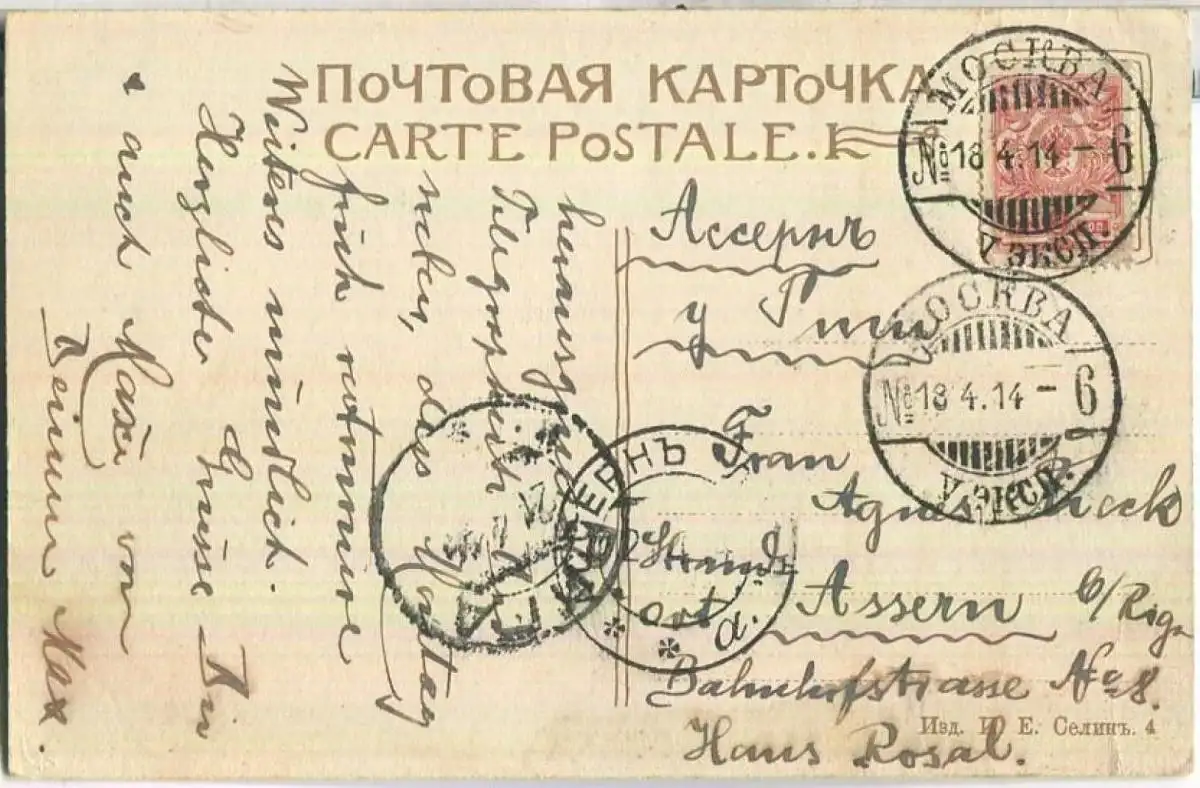 ПОЧТОВАЯ КАРТОЧКА
CARTE POSTALE.
МОСКВА
№ 18 4.14 - 6
V ЭКСП.
МОСКВА
№ 18 4.14 - 6
V ЭКСП.
Ассернъ
у
Frau
Agnes
Strand
ort
Assern b/Riga
Bahnhofstrasse No 8.
Haus Rosal.
Изд. И. Е. Селинъ. 4
АССЕРНЪ
a.
РИГА
Telegraphiert
nicht, dass Montag
früh ankomme
Weiteres mündlich.
Herzliche Grüsse Dir
auch von
Deinem Max.